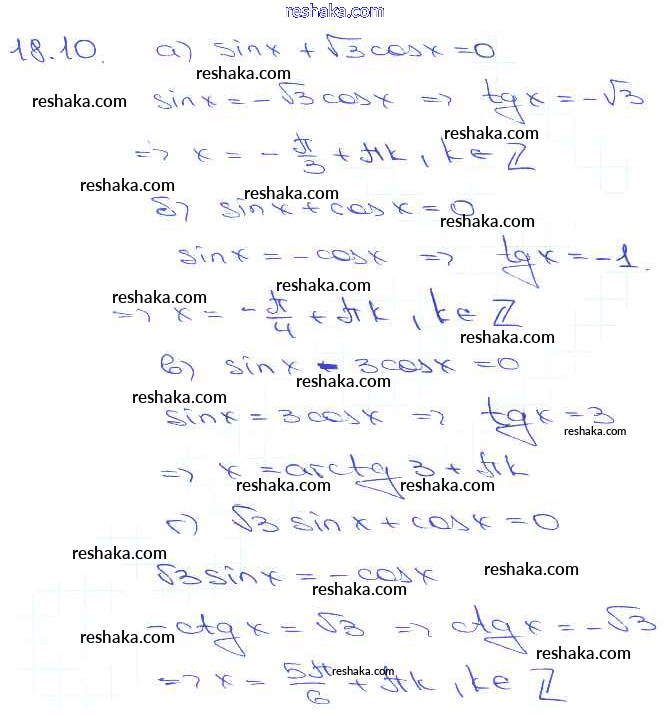 reshaka.com
18.10. а) sinx + √3 cosx = 0
reshaka.com
reshaka.com sinx = -√3 cosx => tgx = -√3
reshaka.com
=> x = -π/3 + πk, k∈ℤ
reshaka.com reshaka.com
б) sinx + cosx = 0
reshaka.com
sinx = -cosx => tgx = -1.
reshaka.com
reshaka.com
=> x = -π/4 + πk, k∈ℤ
reshaka.com
в) sinx - 3cosx = 0
reshaka.com
reshaka.com
sinx = 3cosx => tgx = 3
reshaka.com
=> x = arctg 3 + πk
reshaka.com reshaka.com
г) √3 sinx + cosx = 0
reshaka.com
√3 sinx = -cosx reshaka.com
-ctgx = √3 => ctgx = -√3
reshaka.com
reshaka.com
reshaka.com
=> x = 5π/6 + πk, k∈ℤ